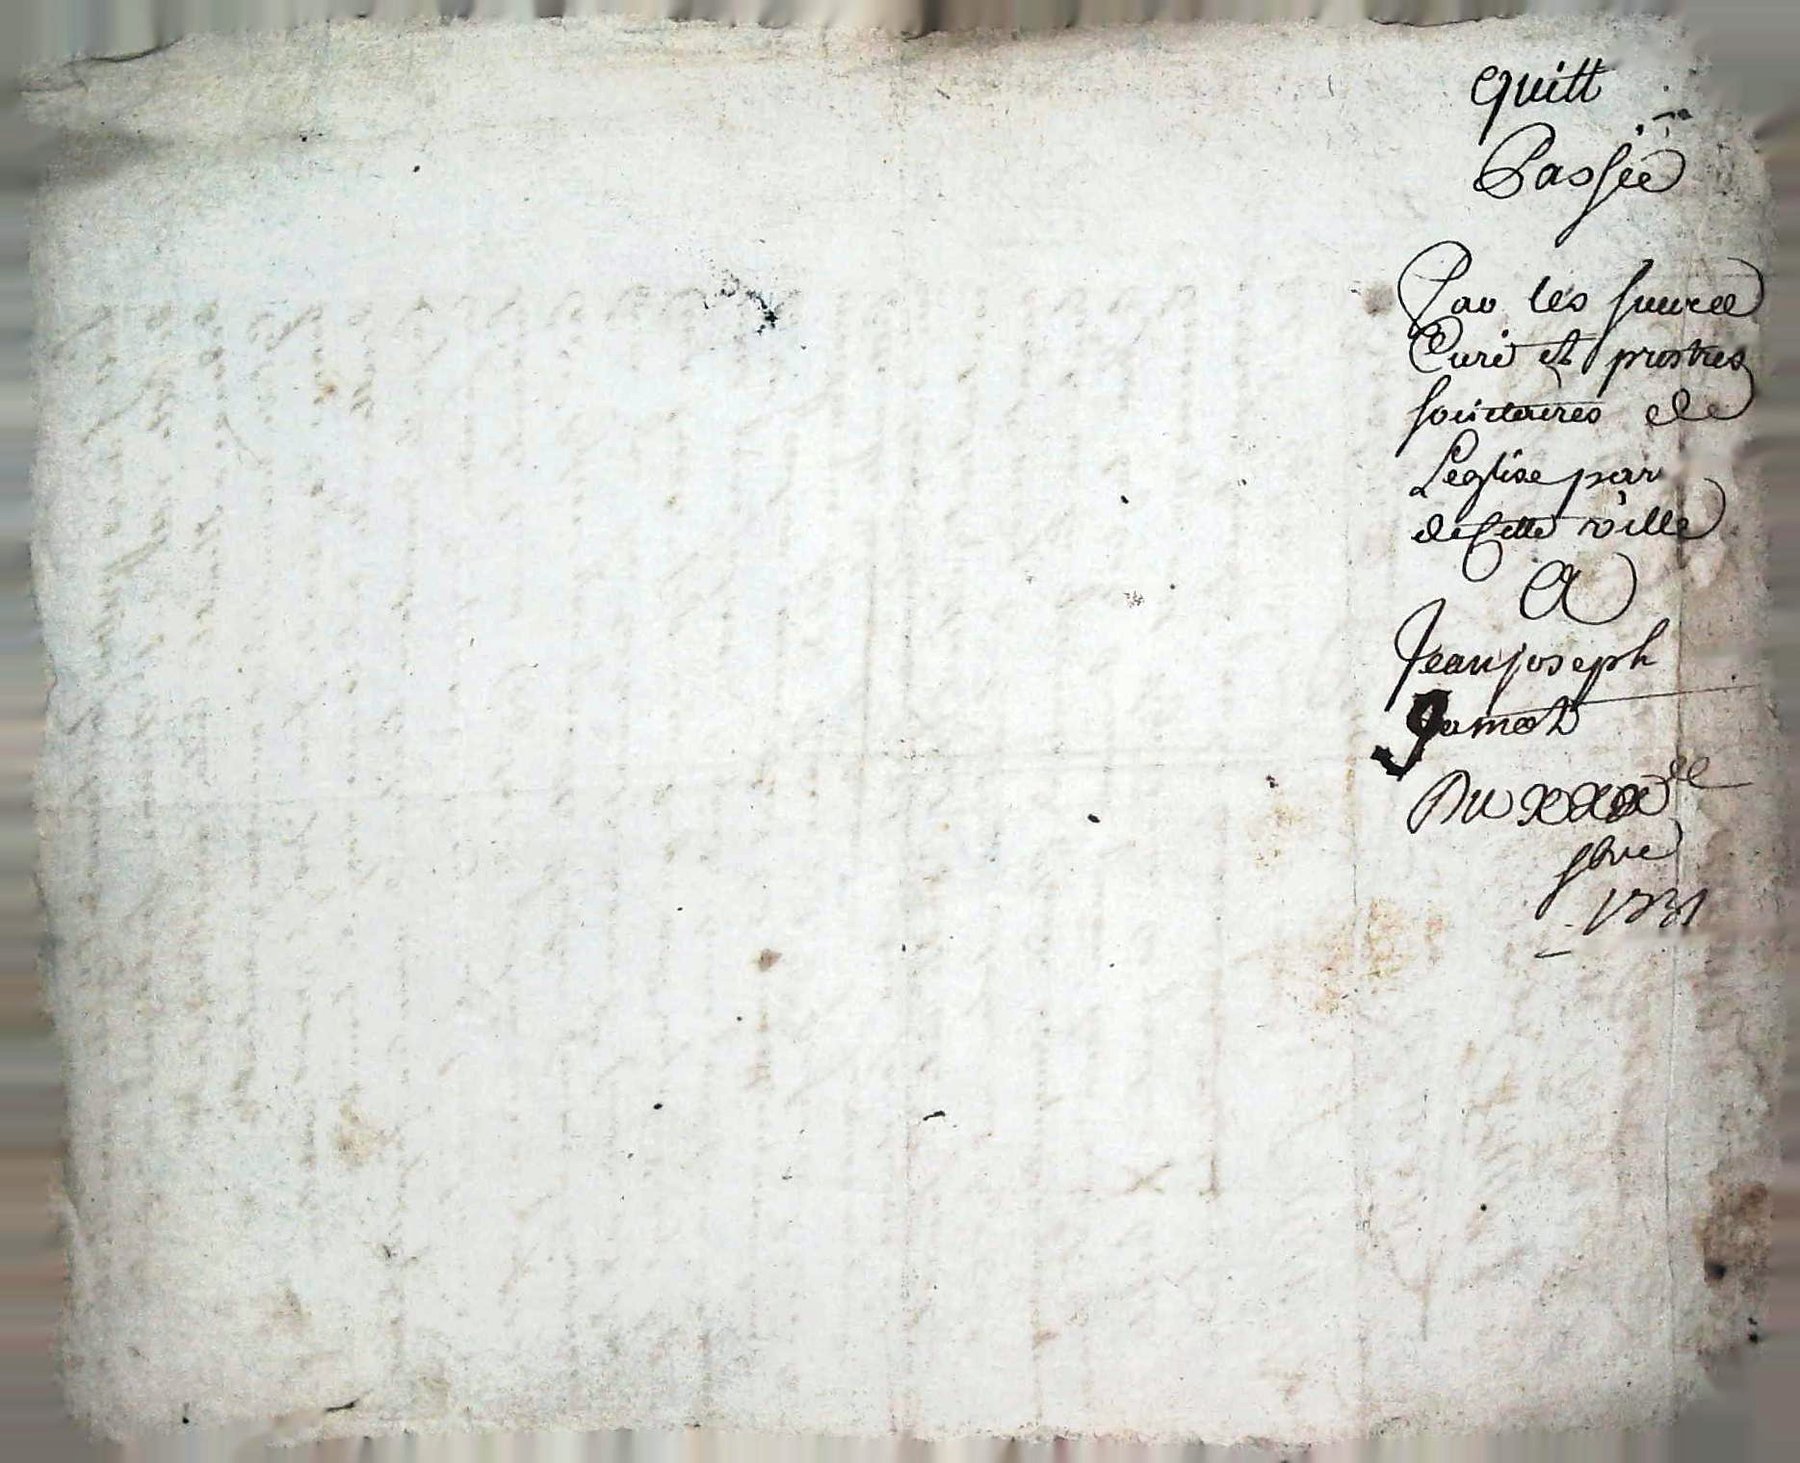 quitt
Passée
Par les sieurs
Curé et prestres
de
Leglise par
de Cette ville
A
Jean joseph
Du xxx
9bre
1731